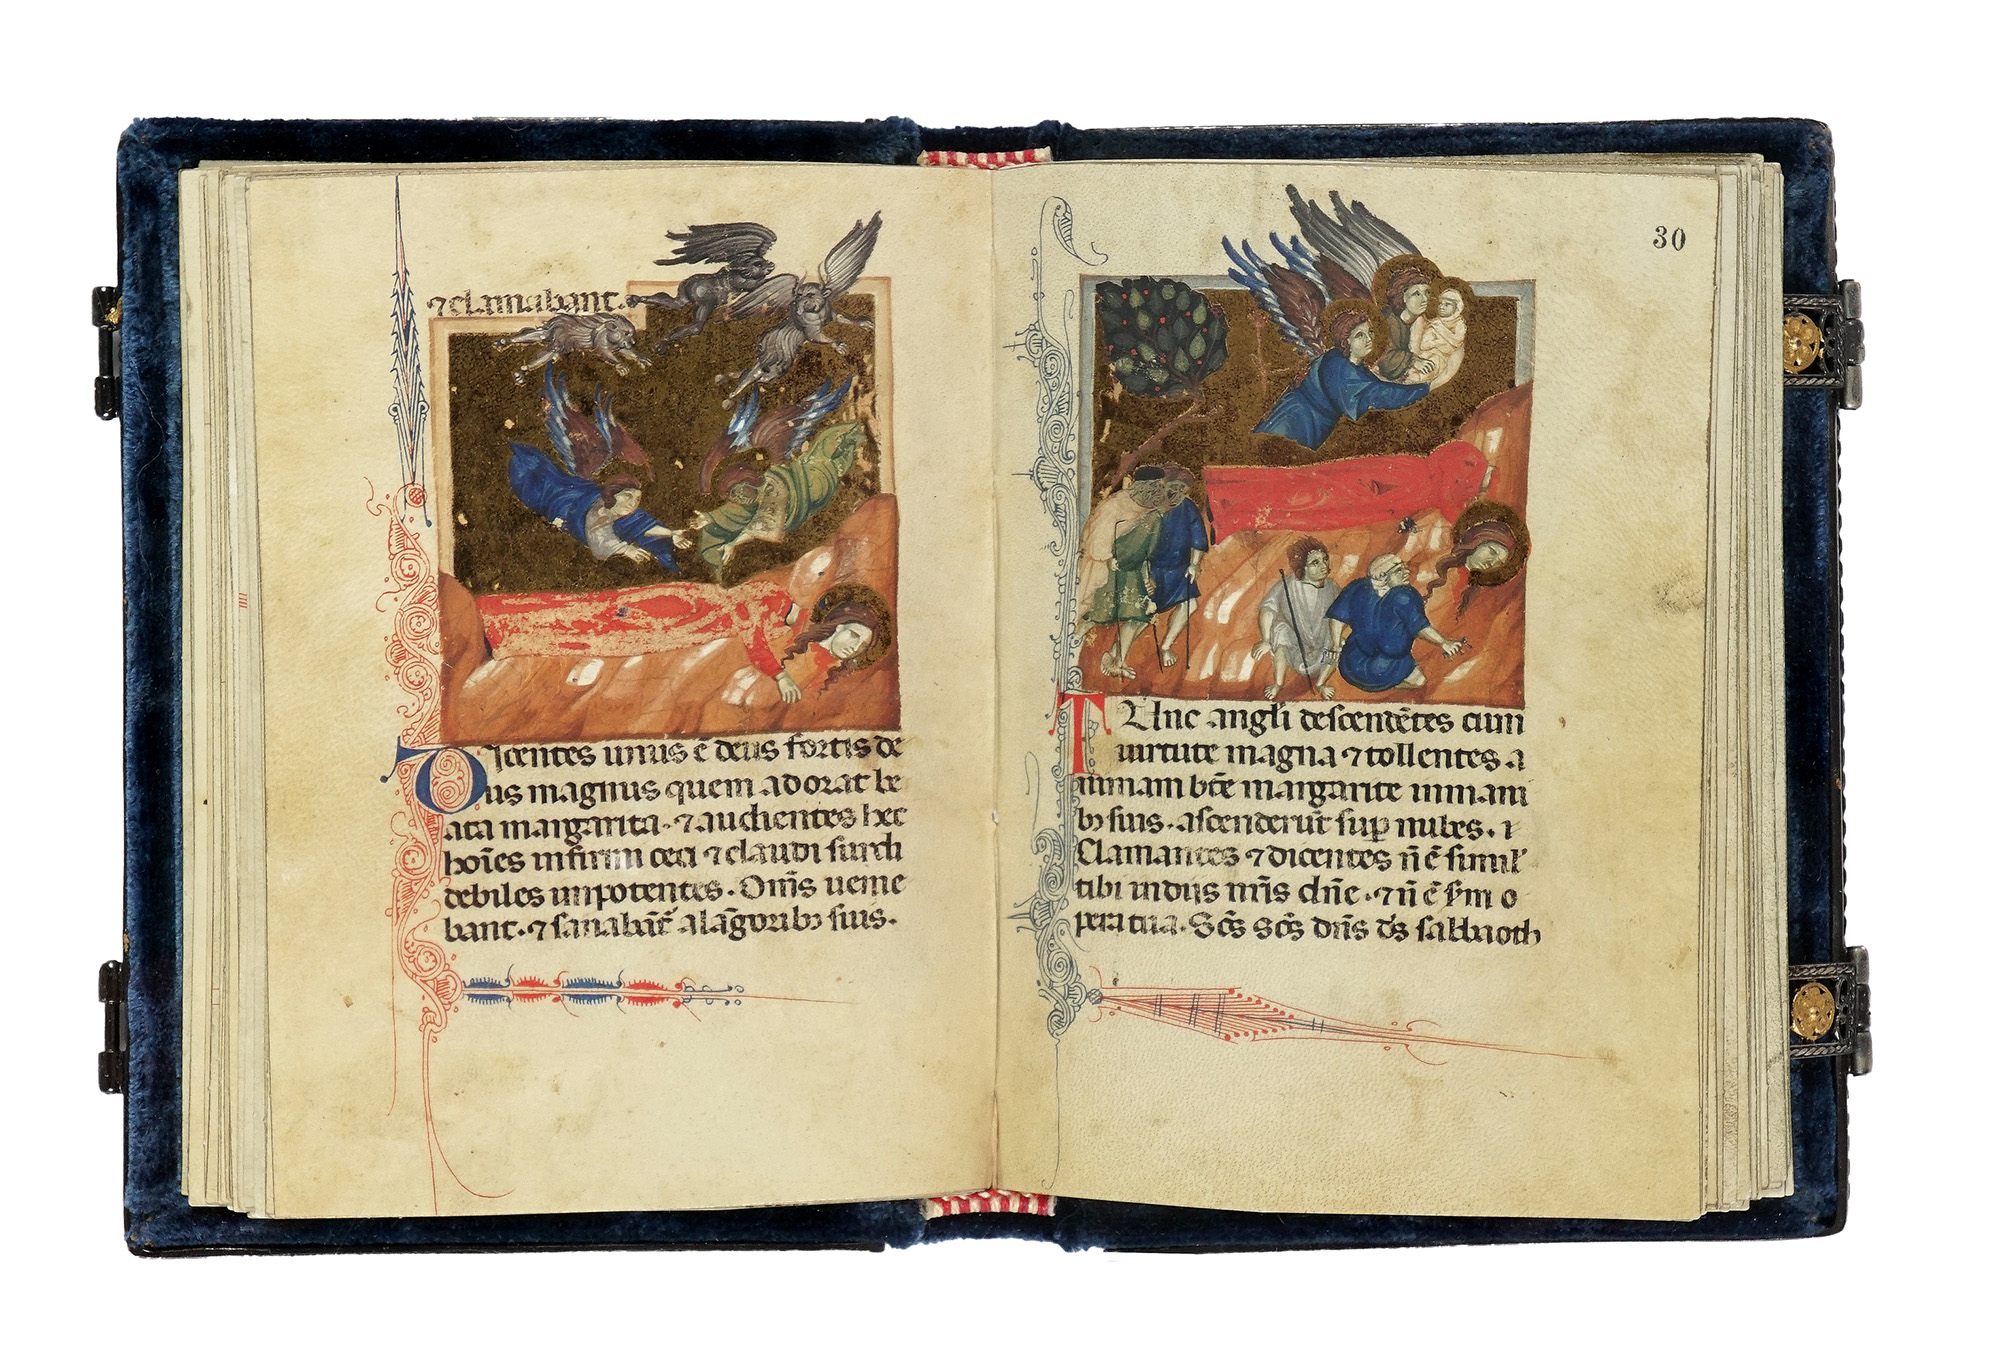 ⁊ clamabant.
Dicentes unus ē deus fortis de
us magnus quem adorat be
ata margarita. ⁊ audientes hec
hoīes infirmi ceci ⁊ claudi surdi
debiles impotentes. Om̄s ueme
bant. ⁊ sanabāt a lāgorib3 suis.
30
Tunc angli descendētes cum
uirtute magna ⁊ tollentes a
nimam btē margarite in mani
b3 suis. ascenderūt sup nubes. ⁊
Clamantes ⁊ dicentes n̄ ē simil'
tibi in diis nr̄is dn̄e. ⁊ n̄ ē s̄m o
pera tua. Sc̄s Sc̄s dn̄s d̄s sabbaoth